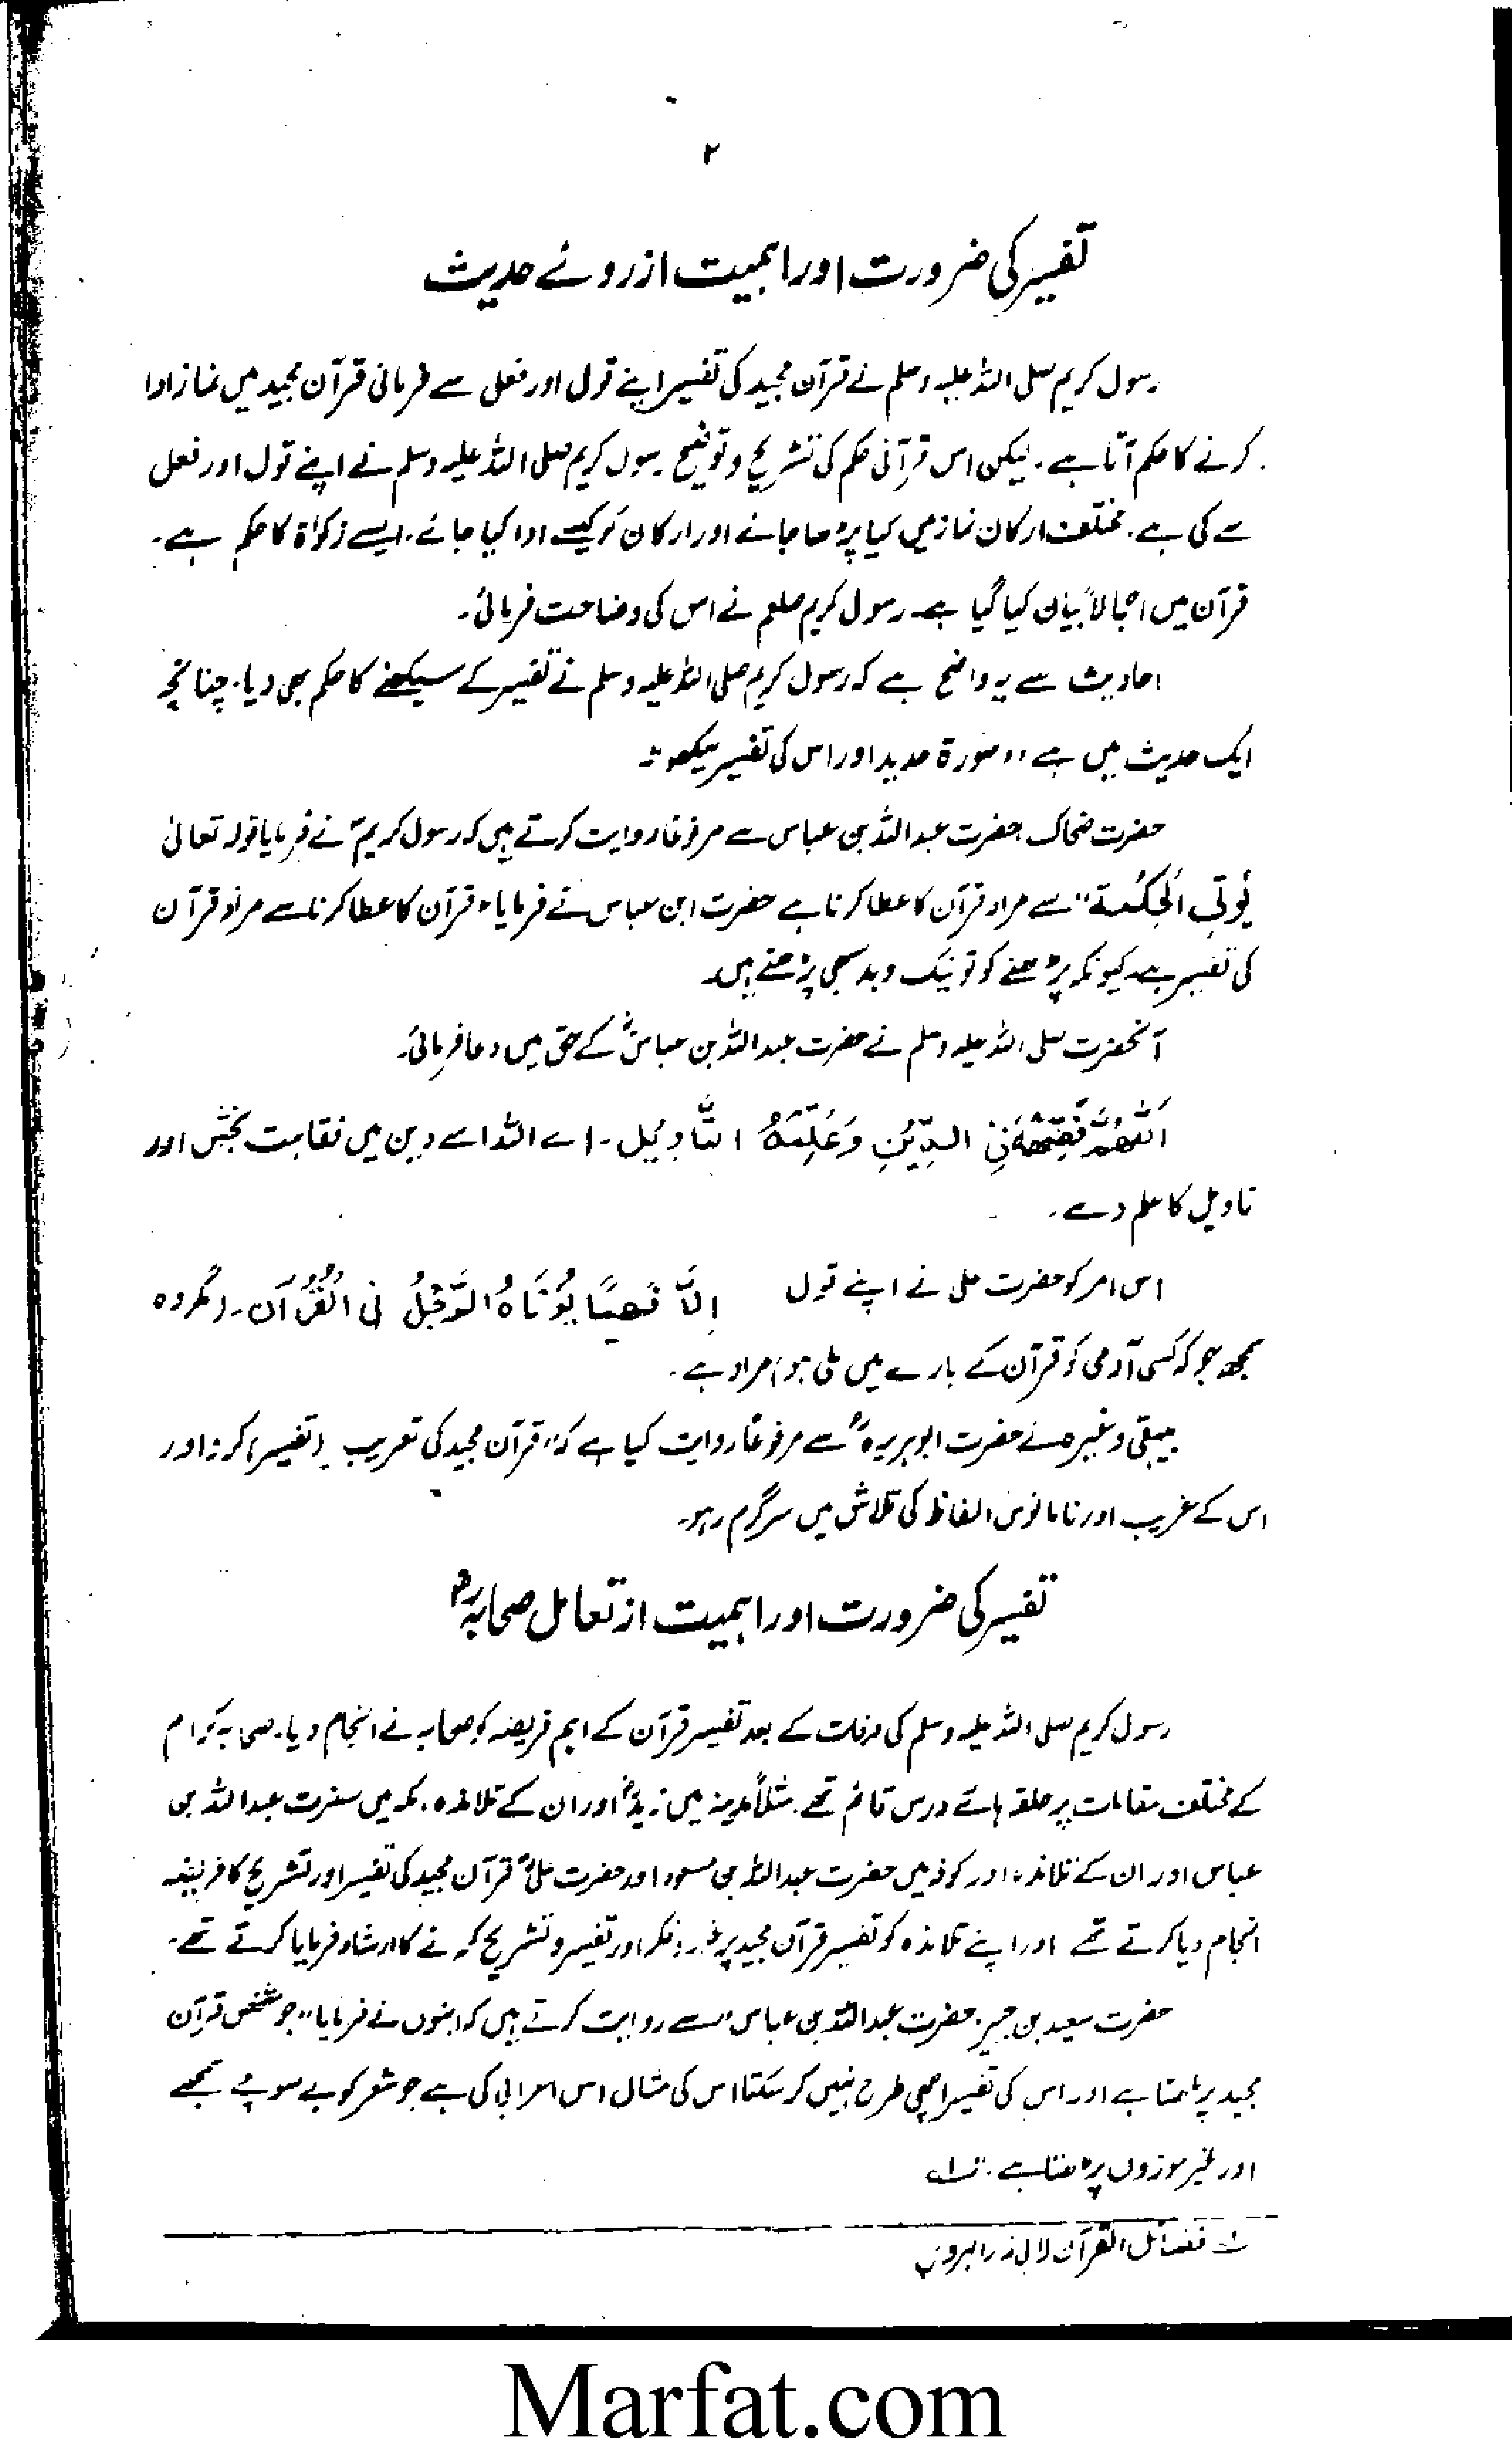 ۲
تفسیر کی ضرورت اور اہمیت از روئے حدیث
رسول کریم صلی اللہ علیہ وسلم نے قرآن مجید کی تفسیر اپنے قول اور فعل سے فرمائی قرآن مجید میں نماز ادا
کرنے کا حکم آتا ہے۔ لیکن اس قرآنی حکم کی تشریح و توضیح رسول کریم صلی اللہ علیہ وسلم نے اپنے قول اور فعل
سے کی ہے۔ مختلف ارکان نماز میں کیا پڑھا جائے اور ارکان کو کیسے ادا کیا جائے۔ ایسے زکواۃ کا حکم ہے۔
قرآن میں اجمالاً بیان کیا گیا ہے۔ رسول کریم صلعم نے اس کی وضاحت فرمائی۔
احادیث سے یہ واضح ہے کہ رسول کریم صلی اللہ علیہ وسلم نے تفسیر کے سیکھنے کا حکم بھی دیا۔ چنانچہ
ایک حدیث میں ہے "سورۃ حدید اور اس کی تفسیر سیکھو"۔
حضرت ضحاک حضرت عبداللہ بن عباس سے مرفوعًا روایت کرتے ہیں کہ رسول کریمؐ نے فرمایا قولہ تعالیٰ
یُؤتِی الْحِکْمَۃَ" سے مراد قرآن کا عطا کرنا ہے حضرت ابن عباس نے فرمایا، قرآن کا عطا کرنا سے مراد قرآن
کی تفسیر ہے کیونکہ پڑھنے کو تو نیک و بد سبھی پڑھتے ہیں۔
آنحضرت صلی اللہ علیہ وسلم نے حضرت عبداللہ بن عباسؓ کے حق میں دعا فرمائی۔
اَللّٰھُمَّ فَقِّھْہُ فِی الدِّیْنِ وَعَلِّمْہُ التَّاوِیْل۔ اے اللہ اسے دین میں فقاہت بخش اور
تاویل کا علم دے۔
اس امر کو حضرت علی نے اپنے قول اِلَّا فَھْمًا یُؤتَاہُ الرَّجُلُ فِی الْقُرْآنِ۔ (مگر وہ
سمجھ جو کہ کسی آدمی کو قرآن کے بارے میں ملی ہو) مراد ہے۔
بیہقی وغیرہ نے حضرت ابوہریرہؓ سے مرفوعًا روایت کیا ہے کہ "قرآن مجید کی تعریب (تفسیر) کرو اور
اس کے غریب اور نامانوس الفاظ کی تلاش میں سرگرم رہو۔
تفسیر کی ضرورت اور اہمیت از تعامل صحابہؓ
رسول کریم صلی اللہ علیہ وسلم کی وفات کے بعد تفسیر قرآن کے اہم فریضہ کو صحابہ نے انجام دیا۔ صحابہ کرام
کے مختلف مقامات پر حلقہ ہائے درس قائم تھے۔ مثلاً مدینہ میں زیدؓ اور ان کے تلامذہ۔ مکہ میں حضرت عبداللہ بن
عباس اور ان کے تلامذہ اور کوفہ میں حضرت عبداللہ بن مسعود اور حضرت علیؓ قرآن مجید کی تفسیر اور تشریح کا فریضہ
انجام دیا کرتے تھے اور اپنے تلامذہ کو تفسیر قرآن مجید پر غور و فکر اور تفسیر و تشریح کرنے کا ارشاد فرمایا کرتے تھے۔
حضرت سعید بن جبیر حضرت عبداللہ بن عباس سے روایت کرتے ہیں کہ انہوں نے فرمایا "جو شخص قرآن
مجید پڑھتا ہے اور اس کی تفسیر اچھی طرح نہیں کر سکتا اس کی مثال اس اعرابی کی ہے جو شعر کو بے سوچے سمجھے
اور غیر موزوں پڑھتا ہے۔" ۱ے
۱ے فضائل القرآن لابی ذر الہروی
Marfat.com